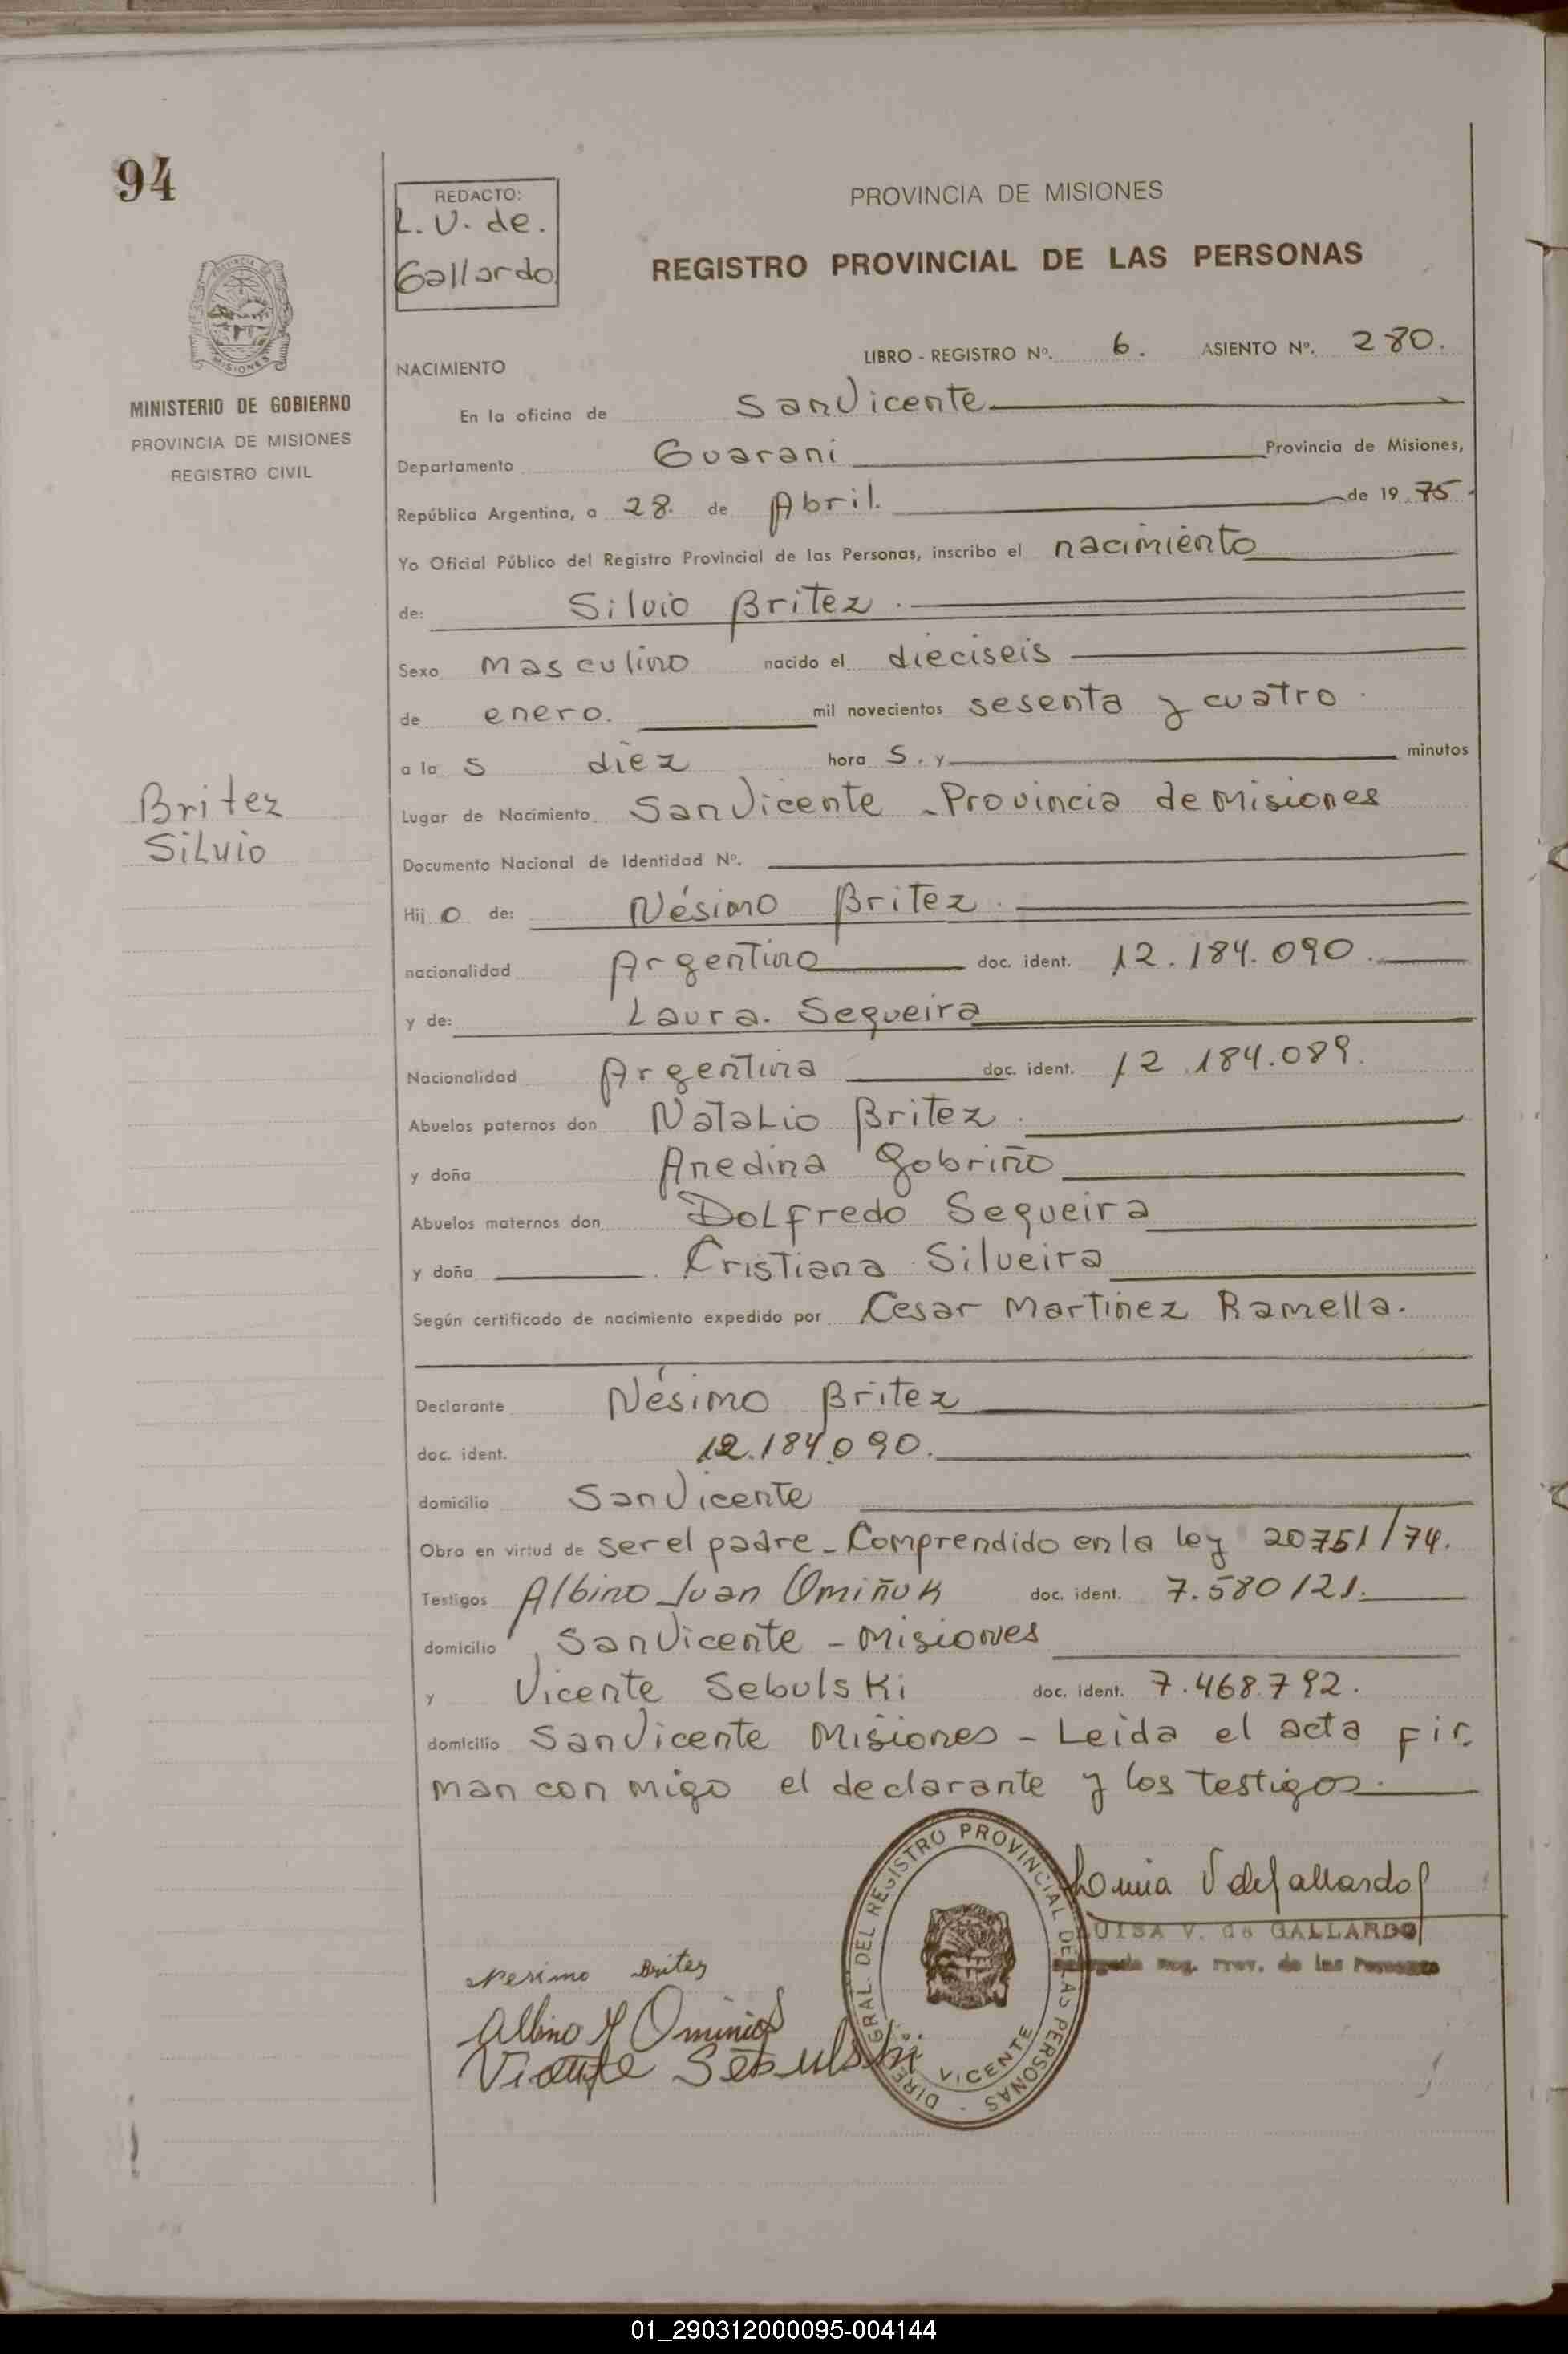 94
REDACTO:
L. V. de.
Gallardo
PROVINCIA DE MISIONES
REGISTRO PROVINCIAL DE LAS PERSONAS
PROVINCIA DE
MISIONES
MINISTERIO DE GOBIERNO
PROVINCIA DE MISIONES
REGISTRO CIVIL
LIBRO - REGISTRO Nº. 6. ASIENTO Nº. 280.
NACIMIENTO
En la oficina de San Vicente
Departamento Guarani Provincia de Misiones,
República Argentina, a 28. de Abril. de 19 75.
Yo Oficial Público del Registro Provincial de las Personas, inscribo el nacimiento
de: Silvio Britez.
Sexo Masculino nacido el dieciseis
de enero. mil novecientos sesenta y cuatro.
a la s diez hora s. y minutos
Britez
Silvio
Lugar de Nacimiento San Vicente - Provincia de Misiones
Documento Nacional de Identidad Nº.
Hij o de: Nésimo Britez.
nacionalidad Argentino doc. ident. 12.184.090.
y de: Laura. Sequeira
Nacionalidad Argentina doc. ident. 12.184.089.
Abuelos paternos don Natalio Britez.
y doña Anedina Gobriño
Abuelos maternos don Dolfredo Sequeira
y doña Cristiana Silveira
Según certificado de nacimiento expedido por Cesar Martinez Ramella.
Declarante Nésimo Britez
doc. ident. 12.184.090.
domicilio San Vicente
Obra en virtud de ser el padre - Comprendido en la ley 20751/74.
Testigos Albino Juan Omiñuk doc. ident. 7.580121.
domicilio San Vicente - Misiones
y Vicente Sebulski doc. ident. 7.468.792.
domicilio San Vicente Misiones - Leida el acta fir
man con migo el declarante y los testigos.
DIREC. GRAL. DEL REGISTRO PROVINCIAL DE LAS PERSONAS -
VICENTE
V de Gallardo
LUISA V. de GALLARDO
Delegada Reg. Prov. de las Personas
Nesimo Britez
Albino
Vicente Sebulski
01_290312000095-004144